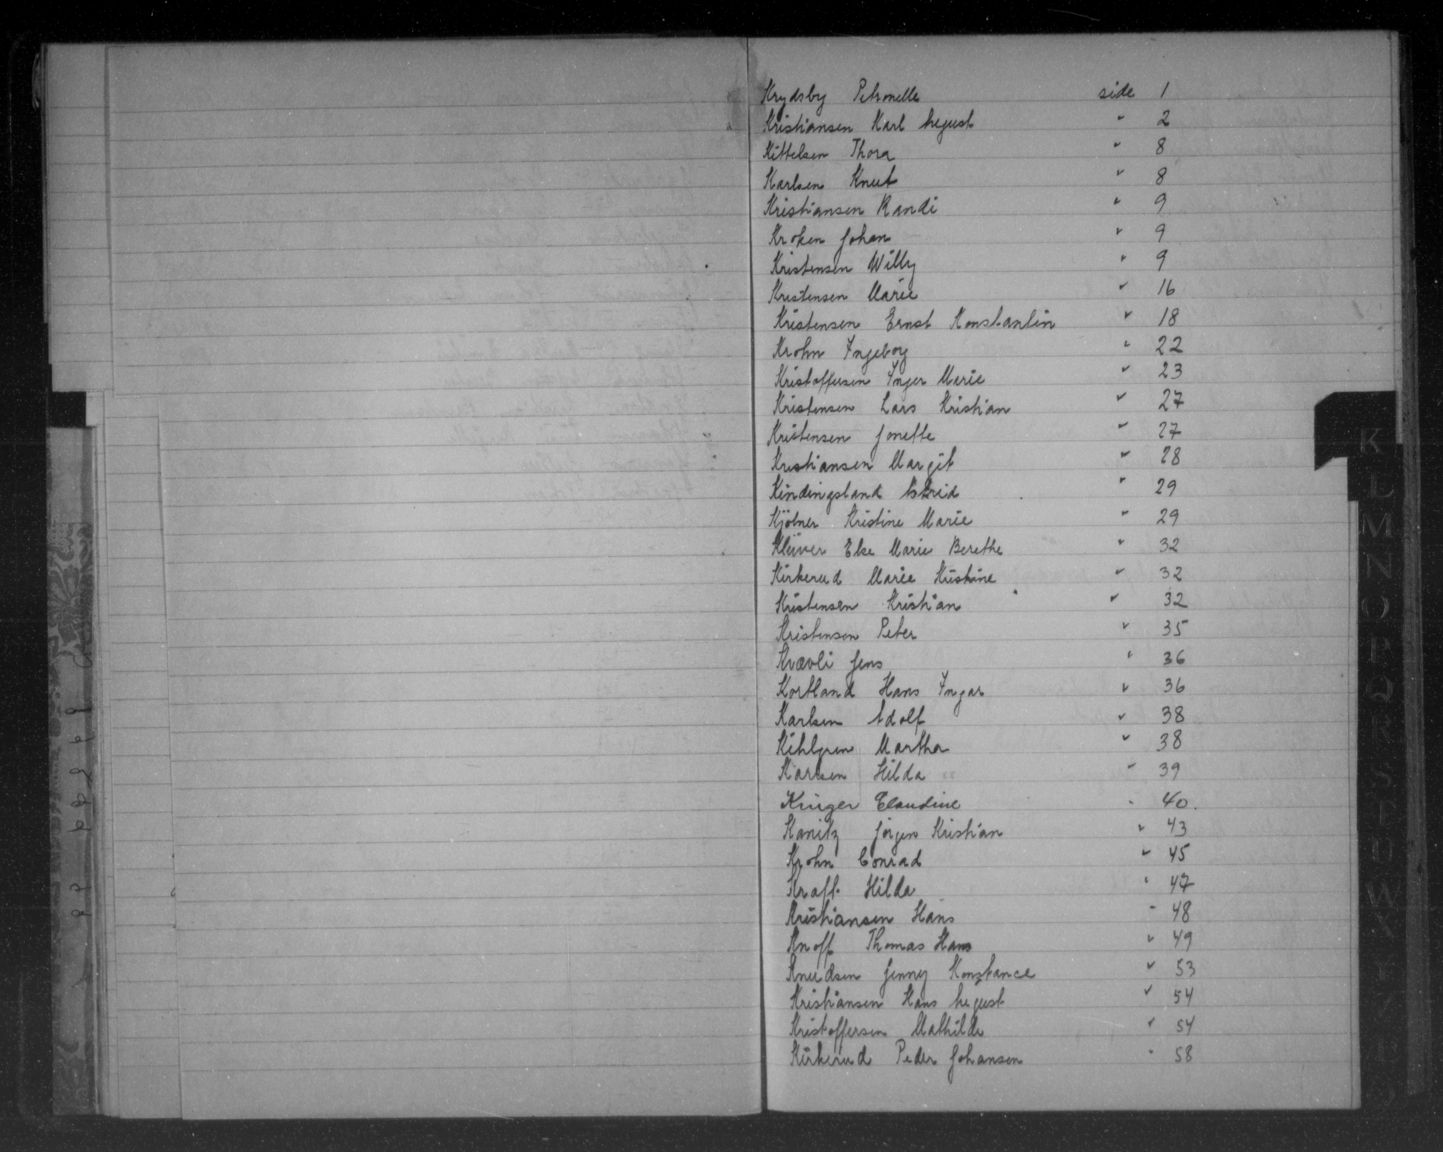 Krydsby Petronelle side 1
Kristiansen Karl August " 2
Kittelsen Thora " 8
Karlsen Knut " 8
Kristiansen Randi " 9
Kroken Johan " 9
Kristensen Willy " 9
Kristensen Marie " 16
Kristensen Ernst Konstantin " 18
Krohn Ingeborg " 22
Kristoffersen Inger Marie " 23
Kristensen Lars Kristian " 27
Kristensen Jonette " 27
Kristiansen Margit " 28
Kindingstand Astrid " 29
Kjölner Kristine Marie " 29
Klüver Else Marie Berethe " 32
Kirkerud Marie Kristine " 32
Kristensen Kristian " 32
Kristensen Peter " 35
Kvævli Jens " 36
Kortland Hans Ingar " 36
Karlsen Adolf " 38
Kihlgren Martha " 38
Karlsen Hilda " 39
Krüger Claudine " 40.
Kanitz Jörgen Kristian " 43
Krohn Conrad " 45
Kraft Hilda " 47
Kristiansen Hans " 48
Knoff Thomas Hans " 49
Knudsen Jenny Konstance " 53
Kristiansen Hans August " 54
Kristoffersen Mathilde " 54
Kirkerud Peder Johansen " 58
K
L
M
N
O
P
Q
R
S
T
U